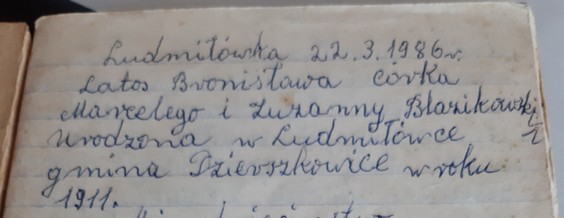 Ludmiłówka 22.3.1986r.
Latos Bronisława córka
Marcelego i Zuzanny Błazików
Urodzona w Ludmiłówce
gmina Dzierzkowice w roku
1911.